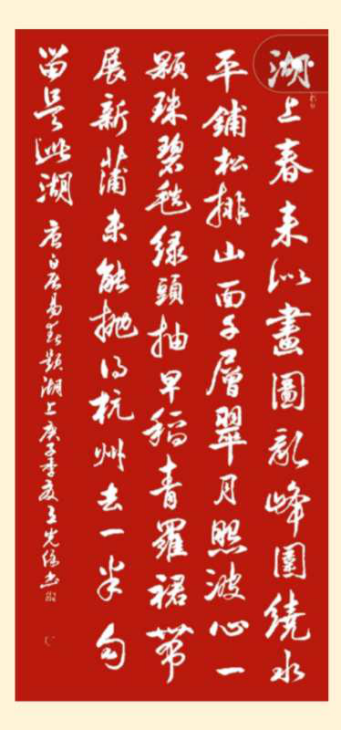 湖上春来似畫圖亂峰圍繞水
平鋪松排山面千層翠月照波心一
顆珠碧毯綠頭抽早稻青羅裙帶
展新蒲未能抛得杭州去一半勾
留是此湖 唐白居易春題湖上庚子季夏王光